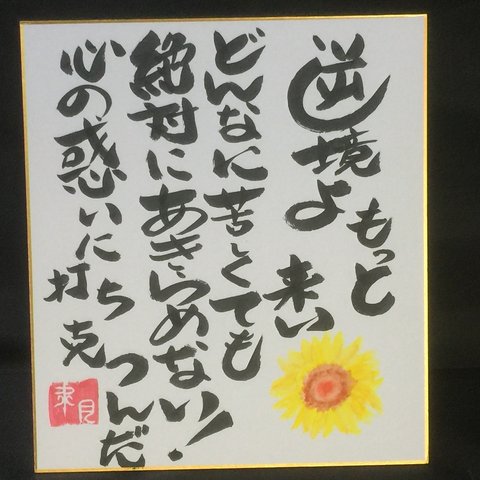 逆境よ
もっと
来い
どんなに苦しくても
絶対にあきらめない!
心の惑いに
打ち克つんだ